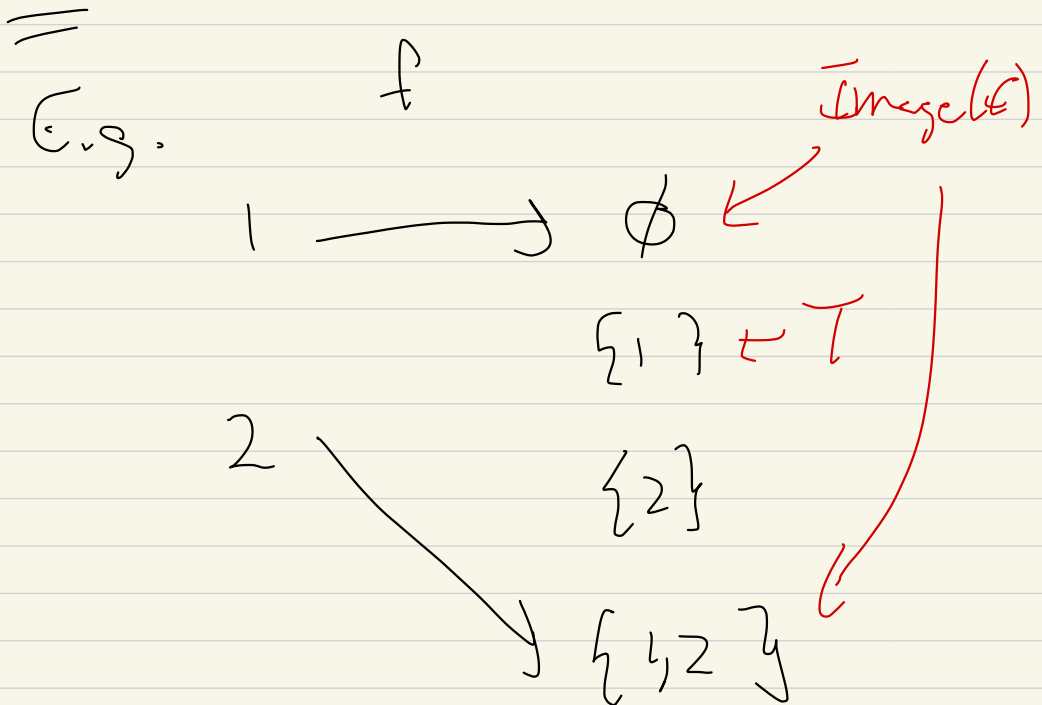 f
E.g.
Image(f)
1 → ∅
{1} ← T
2
{2}
{1,2}